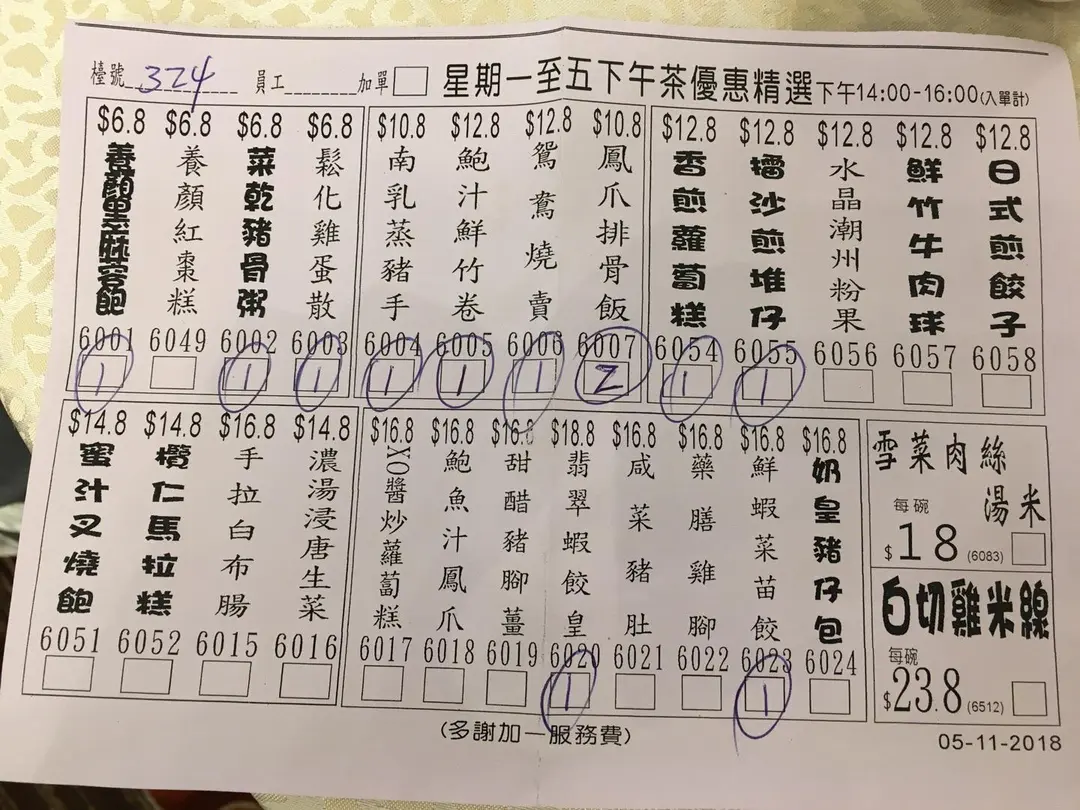 檯號 324 員工 加單 星期一至五下午茶優惠精選 下午14:00-16:00(入單計)
$6.8 $6.8 $6.8 $6.8 $10.8 $12.8 $12.8 $10.8 $12.8 $12.8 $12.8 $12.8 $12.8
養顏黑蔴蓉飽
養顏紅棗糕
菜乾豬骨粥
鬆化雞蛋散
南乳蒸豬手
鮑汁鮮竹卷
鴛鴦燒賣
鳳爪排骨飯
香煎蘿蔔糕
擂沙煎堆仔
水晶潮州粉果
鮮竹牛肉球
日式煎餃子
6001 6049 6002 6003 6004 6005 6006 6007 6054 6055 6056 6057 6058
1 1 1 1 1 1 2 1 1
$14.8 $14.8 $16.8 $14.8 $16.8 $16.8 $16.8 $18.8 $16.8 $16.8 $16.8 $16.8
蜜汁叉燒飽
欖仁馬拉糕
手拉白布腸
濃湯浸唐生菜
XO醬炒蘿蔔糕
鮑魚汁鳳爪
甜醋豬腳薑
翡翠蝦餃皇
咸菜豬肚
藥膳雞腳
鮮蝦菜苗餃
奶皇豬仔包
6051 6052 6015 6016 6017 6018 6019 6020 6021 6022 6023 6024
1 1
雪菜肉絲
湯米
每碗
$18 (6083)
白切雞米線
每碗
$23.8 (6512)
(多謝加一服務費)
05-11-2018